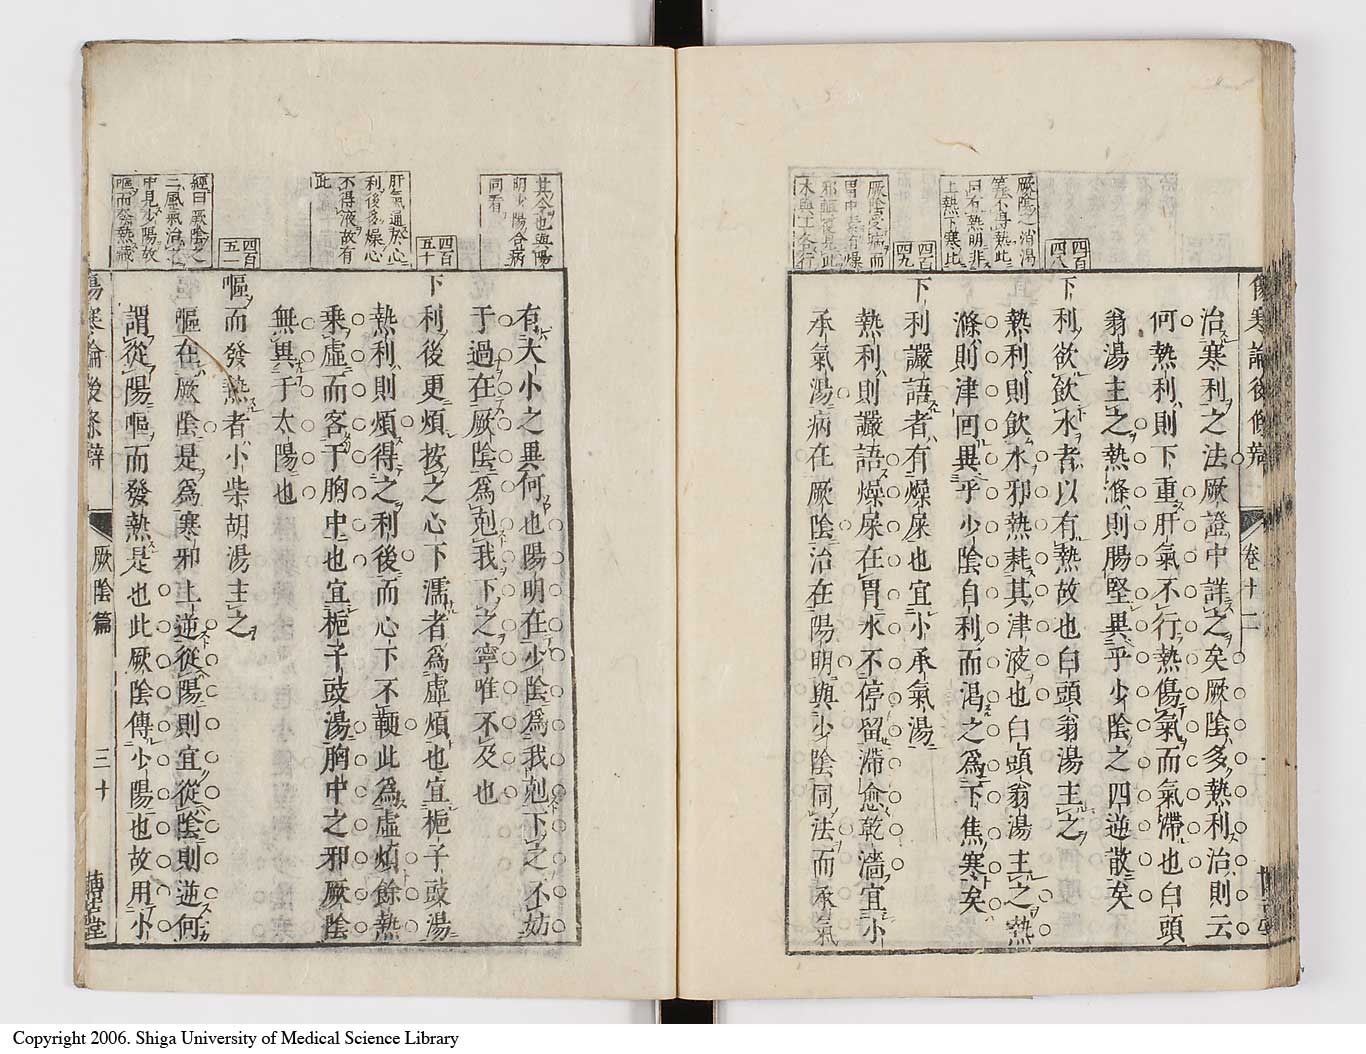 傷寒論後條辨
卷十二
四百四八
厥陰之消渴
等不得熱此
同有熱明非
上熱下寒此
四百四九
厥陰受病而
胃中素有燥
治寒利之法厥證中詳之矣厥陰多熱利治則云
何熱利則下重肝氣不行熱傷氣而氣滯也白頭
翁湯主之熱滌則腸堅異乎少陰之四逆散矣
下利欲飲水者以有熱故也白頭翁湯主之
熱利則飲水邪熱耗其津液也白頭翁湯主之熱
滌則津回異乎少陰自利而渴之爲下焦寒矣
下利讝語者有燥屎也宜小承氣湯
熱利則讝語燥屎在胃水不停留滯愈乾濇宜小
承氣湯病在厥陰治在陽明與少陰同法而承氣
其令也與陽
明少陽合病
同看
四百五十
肝氣通於心
利後多燥心
不得液故有
此
四百五一
經曰厥陰之
上風氣治之
中見少陽故
嘔而發熱藏
有大小之異何也陽明在少陰爲我剋下之不妨
于過在厥陰爲剋我下之寧唯不及也
下利後更煩按之心下濡者爲虛煩也宜梔子豉湯
熱利則煩得之利後而心下不鞕此爲虛煩餘熱
乘虛而客于胸中也宜梔子豉湯胸中之邪厥陰
無異于太陽也
嘔而發熱者小柴胡湯主之
嘔在厥陰是爲寒邪上逆從陽則宜從陰則逆何
謂從陽嘔而發熱是也此厥陰傳少陽也故用小
傷寒論後條辨
厥陰篇
三十
博古堂
Copyright 2006. Shiga University of Medical Science Library